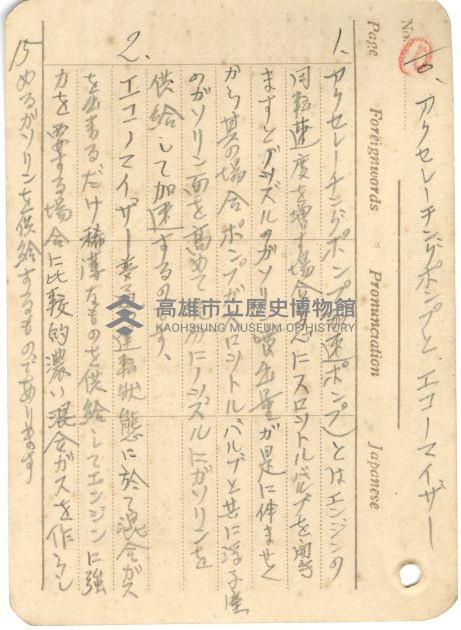 No.
Page Foreignwords Pronunciation Japanese
アクセレーチングポンプと エコノマイザー
1. アクセレーチングポンプ(加速ポンプ)とはエンジンの
回転速度を増す場合急にスロットルバルブを開き
ますとノズルのガソリン噴出量が是に伴ませぬ
から其の場合ポンプがスロットルバルブと共に浮子室
のガソリン面を高めて かにノズルにガソリンを
供給して加速するのです、
2. エコノマイザー 普 運転状態に於て混合ガス
を出来るだけ稀薄なものを供給してエンジンに強
力を要する場合に比較的濃い混合ガスを作らし
めるガソリンを供給するものであります
15
高雄市立歷史博物館
KAOHSIUNG MUSEUM OF HISTORY